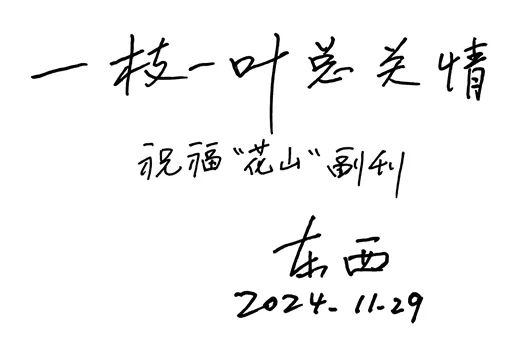 一枝一叶总关情
祝福“花山”副刊
东西
2024.11.29